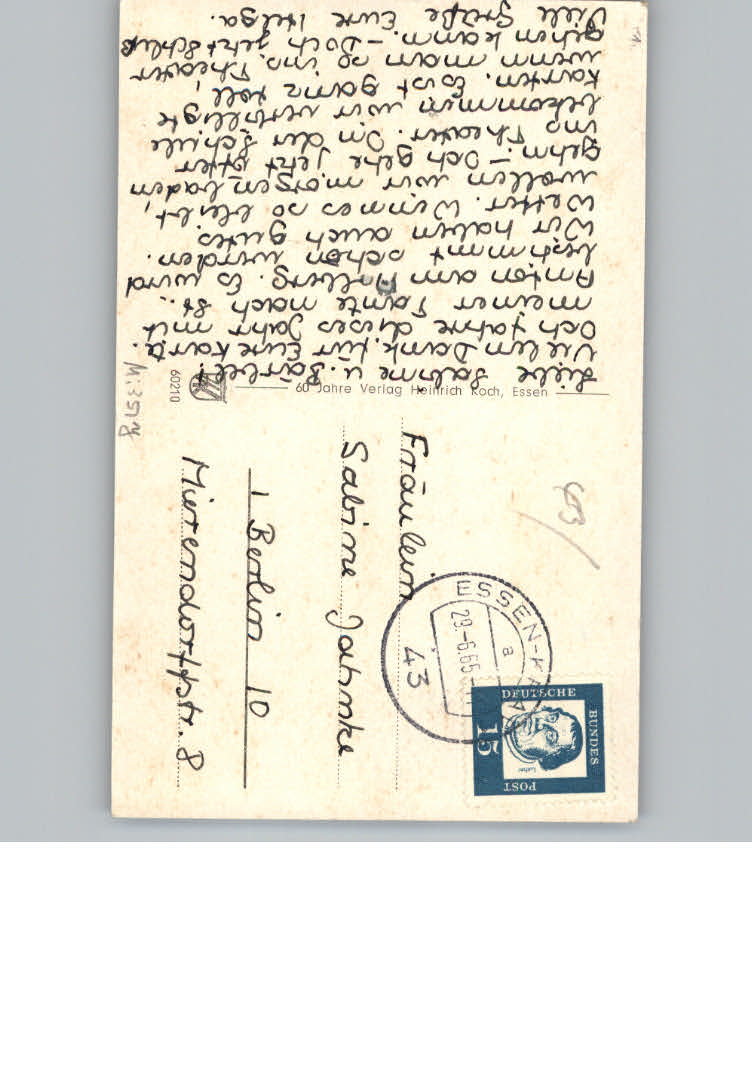 Liebe Sabine u. Bärbel!
Vielen Dank für Eure Karte.
Ich fahre dieses Jahr mit
meiner Tante nach St.
Anton am Arlberg. Es wird
bestimmt schön werden.
Wir haben auch gutes
Wetter. Wenn es so bleibt,
wollen wir morgen baden
gehn. – Ich gehe jetzt öfter
ins Theater. In der Schule
bekommen wir verbilligte
Karten. Es ist ganz toll,
wenn man so ins Theater
gehen kann. – Doch jetzt Schluß
Viele Grüße Eure Helga.
60 Jahre Verlag Heinrich Koch, Essen
60210
Fräulein
Sabine Jahnke
1 Berlin 10
Mierendorffstr. 8
ESSEN-
29-6.65
a
43
DEUTSCHE
BUNDES
POST
15
Luther